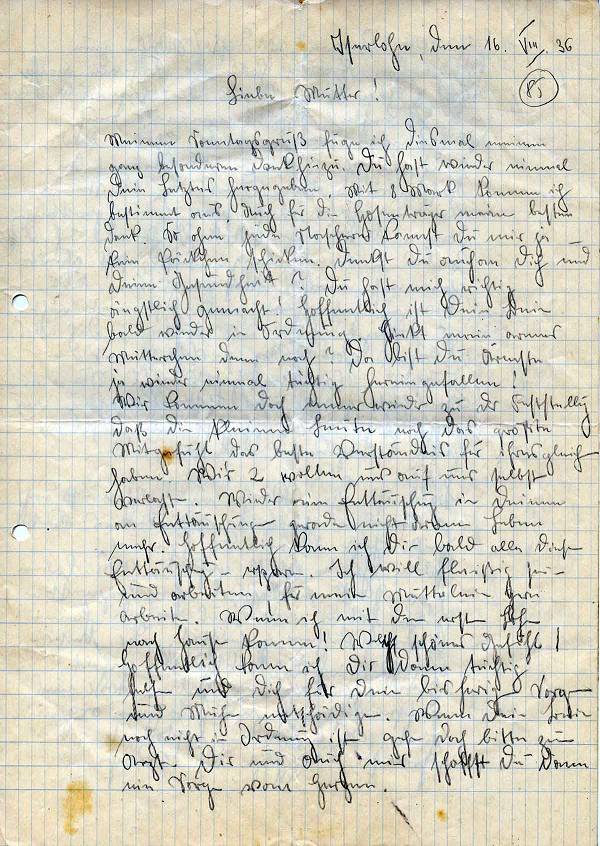 Iserlohn, den 16. VIII. 36
85
Liebe Mutter!
Meinem Sonntagsgruß füge ich diesmal meinen
ganz besonderen Dank hinzu. Du hast wieder einmal
Dein Letztes hergegeben. Mit 8 Mark komme ich
bestimmt aus. Auch für die Hosenträger meinen besten
Dank. So ohne jede kannst Du mir ja
kein Päckchen schicken. Denkst Du auch an Dich und
Deine Gesundheit? Du hast mich richtig
ängstlich gemacht! Hoffentlich ist Dein Knie
bald wieder in Ordnung. Hinkt mein armes
Mütterchen denn noch? Da bist Du Ärmste
ja wieder einmal tüchtig hereingefallen!
Wir kommen doch immer wieder zu der Feststellung
daß die kleinen Leute noch das größte
Mitgefühl das beste Verständnis für ihresgleichen
haben. Wir 2 wollen uns auf uns selbst
verlassen. Wieder eine Enttäuschung in Deinem
an Enttäuschungen gerade nicht armen Leben
mehr. Hoffentlich kann ich Dir bald alle diese
Enttäuschungen ersparen. Ich will fleißig sein
und arbeiten für mein Mütterlein gern
arbeiten. Wenn ich mit dem ersten Lohn
nach Hause komme! Welch schönes Gefühl!
Hoffentlich kann ich Dir dann tüchtig
helfen und Dich für Deine bisherigen Sorgen
und Mühen entschädigen. Wenn Dein Knie
noch nicht in Ordnung ist gehe doch bitte zum
Arzt. Dir und auch mir schaffst Du dann
eine Sorge vom Herzen.